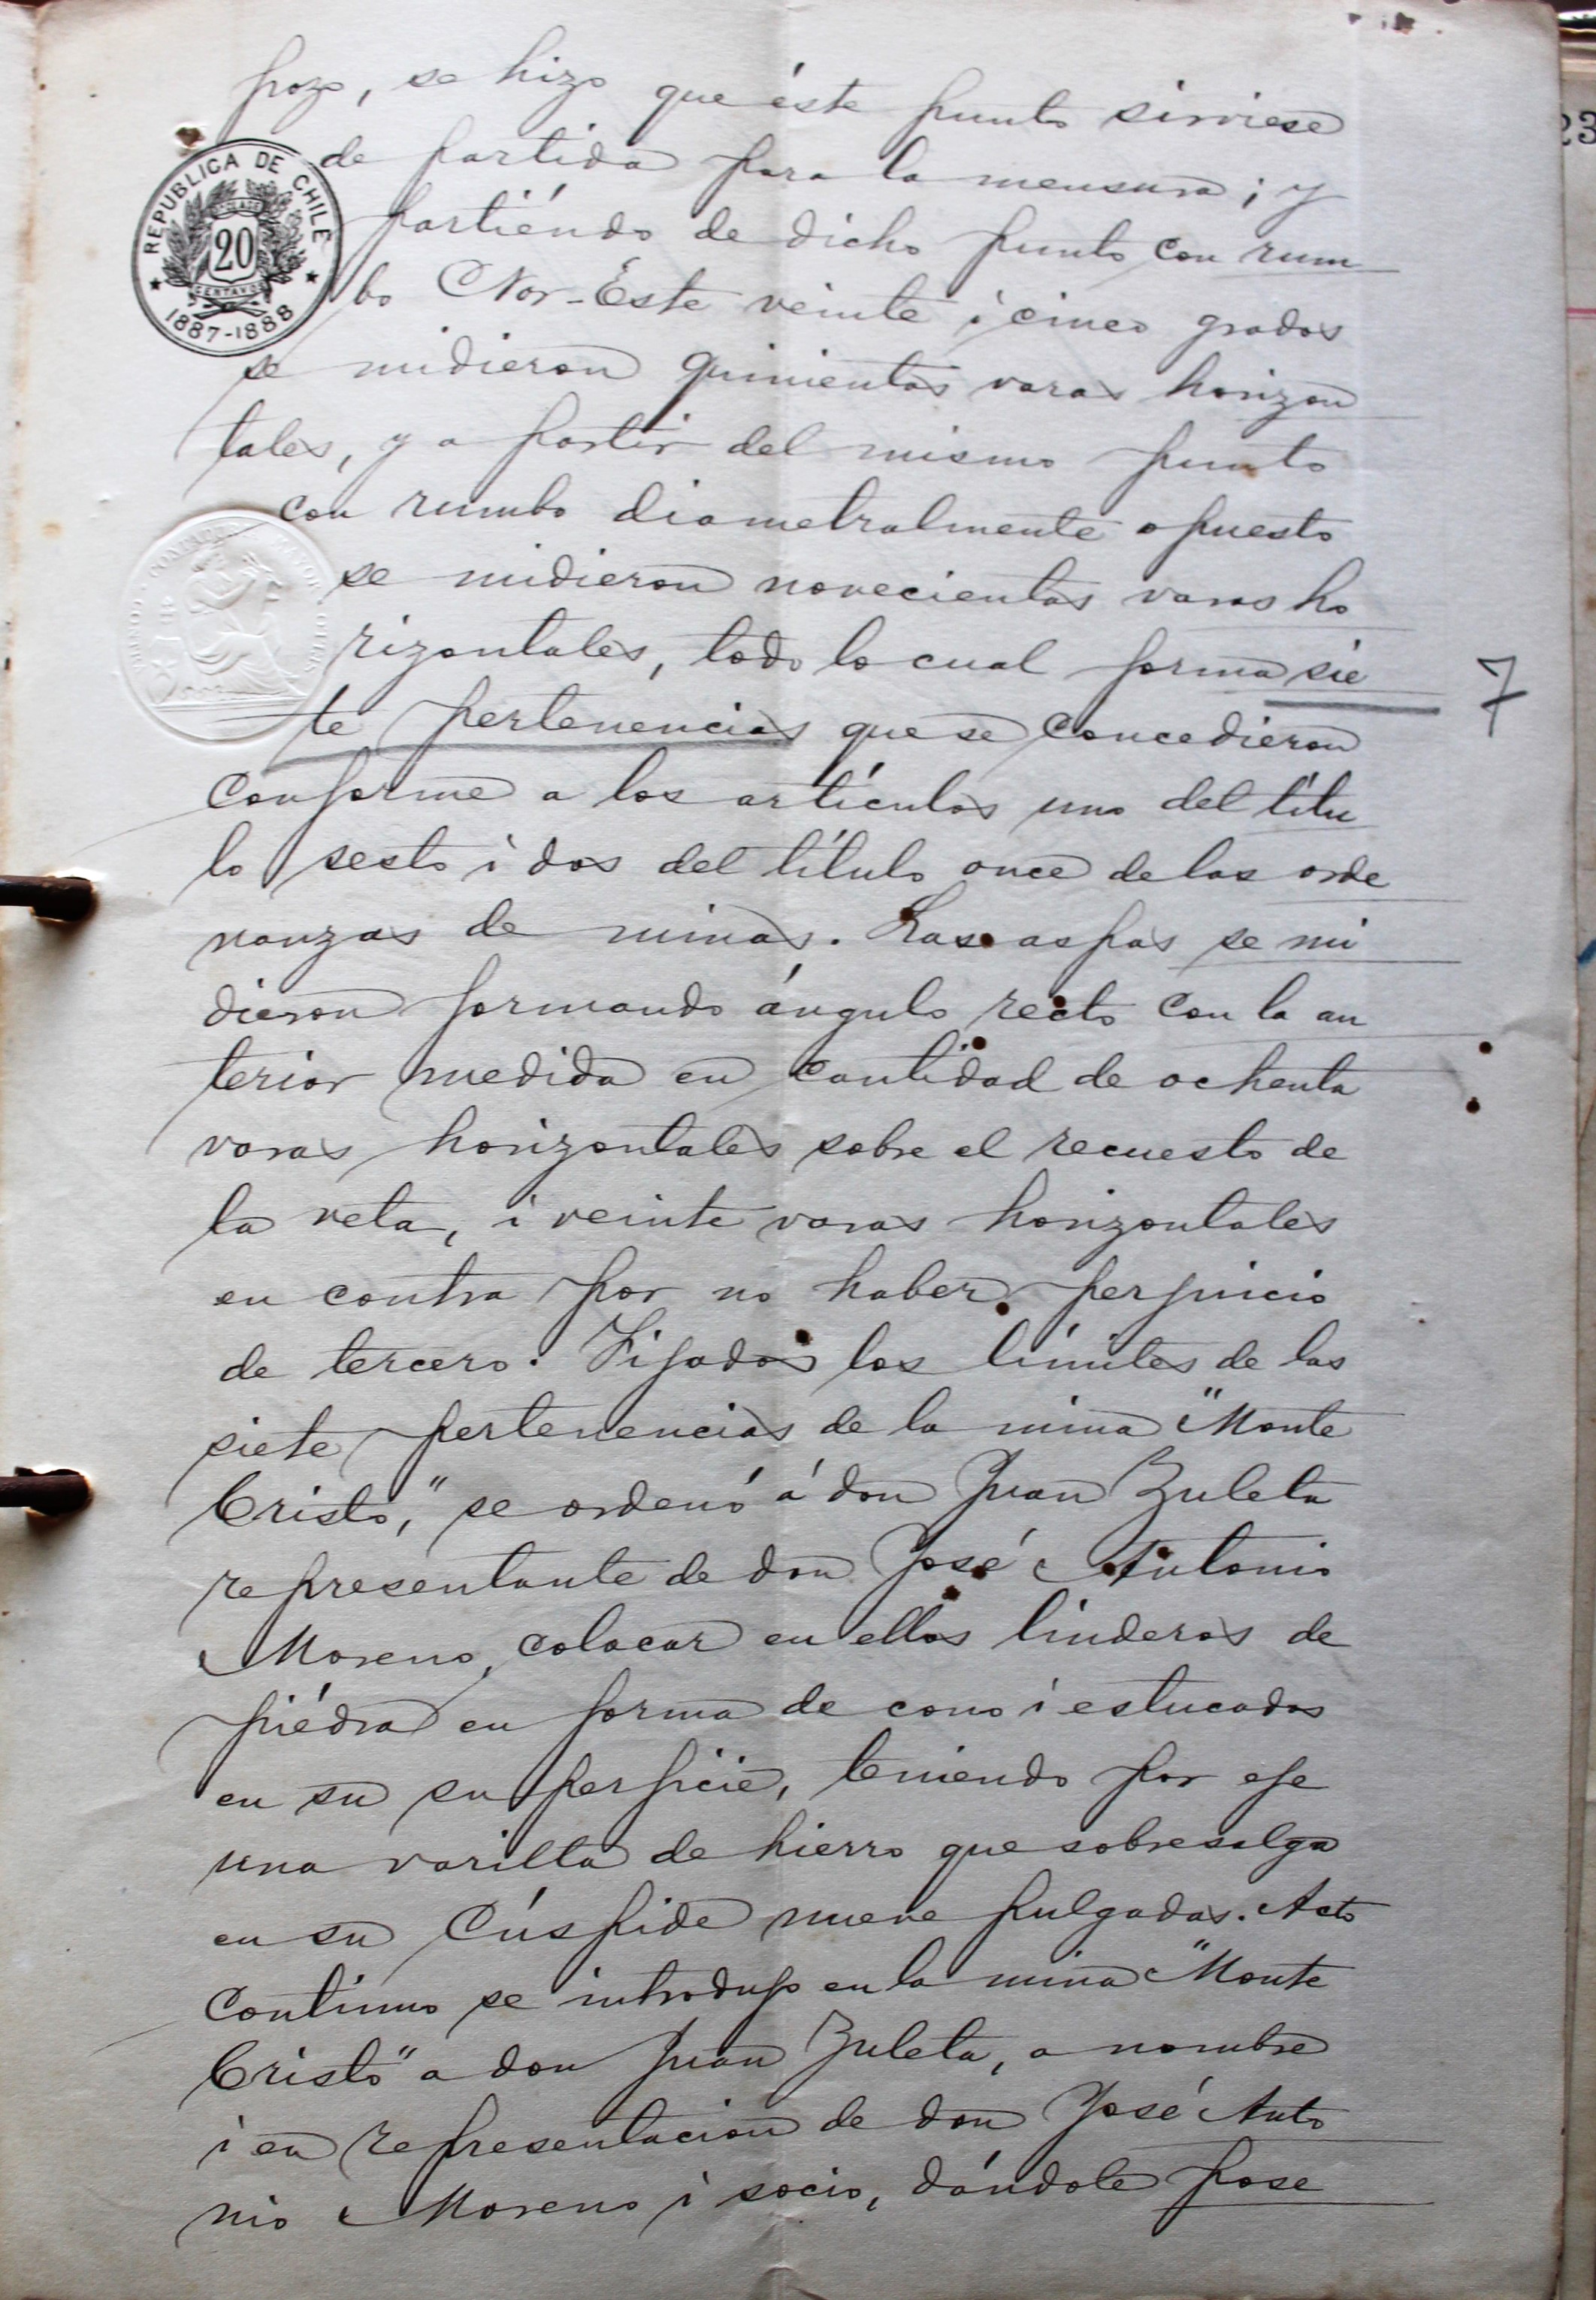 pozo, se hizo que éste punto sirviese
de partida para la mensura; y
REPUBLICA DE CHILE
20
CENTAVOS
1887-1888
partiéndo de dicho punto con rum
bo Nor-Éste veinte i cinco grados
se midieron quinientas varas horizon
tales, y a partir del mismo punto
con rumbo diametralmente opuesto
se midieron novecientas varas ho
rizontales, todo lo cual forma sie
7
te pertenencias que se concedieron
conforme a los artículos uno del títu
lo sesto i dos del título once de las orde
nanzas de minas. Las aspas se mi
dieron formando ángulo recto con la an
terior medida en cantidad de ochenta
varas horizontales sobre el recuesto de
la veta, i veinte varas horizontales
en contra por no haber perjuicio
de tercero. Fijados los límites de las
siete pertenencias de la mina "Monte
Cristo," se ordenó á don Juan Zuleta
representante de don José Antonio
Moreno, colocar en ellos linderos de
piédra en forma de cono i estucados
en su superficie, teniendo por eje
una varilla de hierro que sobresalga
en su cúspide nueve pulgadas. Acto
continuo se introdujo en la mina "Monte
Cristo" a don Juan Zuleta, a nombre
i en representacion de don José Anto
nio Moreno i socio, dándole pose
23